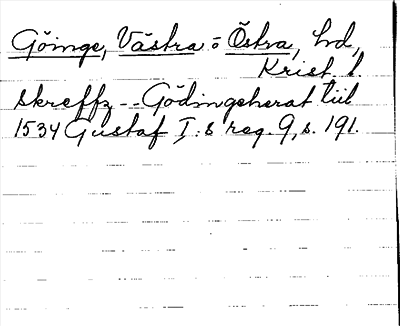 Göinge, Västra o Östra, hd,
Krist. l.
skreffz -- Gödingeherat tiil
1534 Gustaf I:s reg. 9, s. 191.